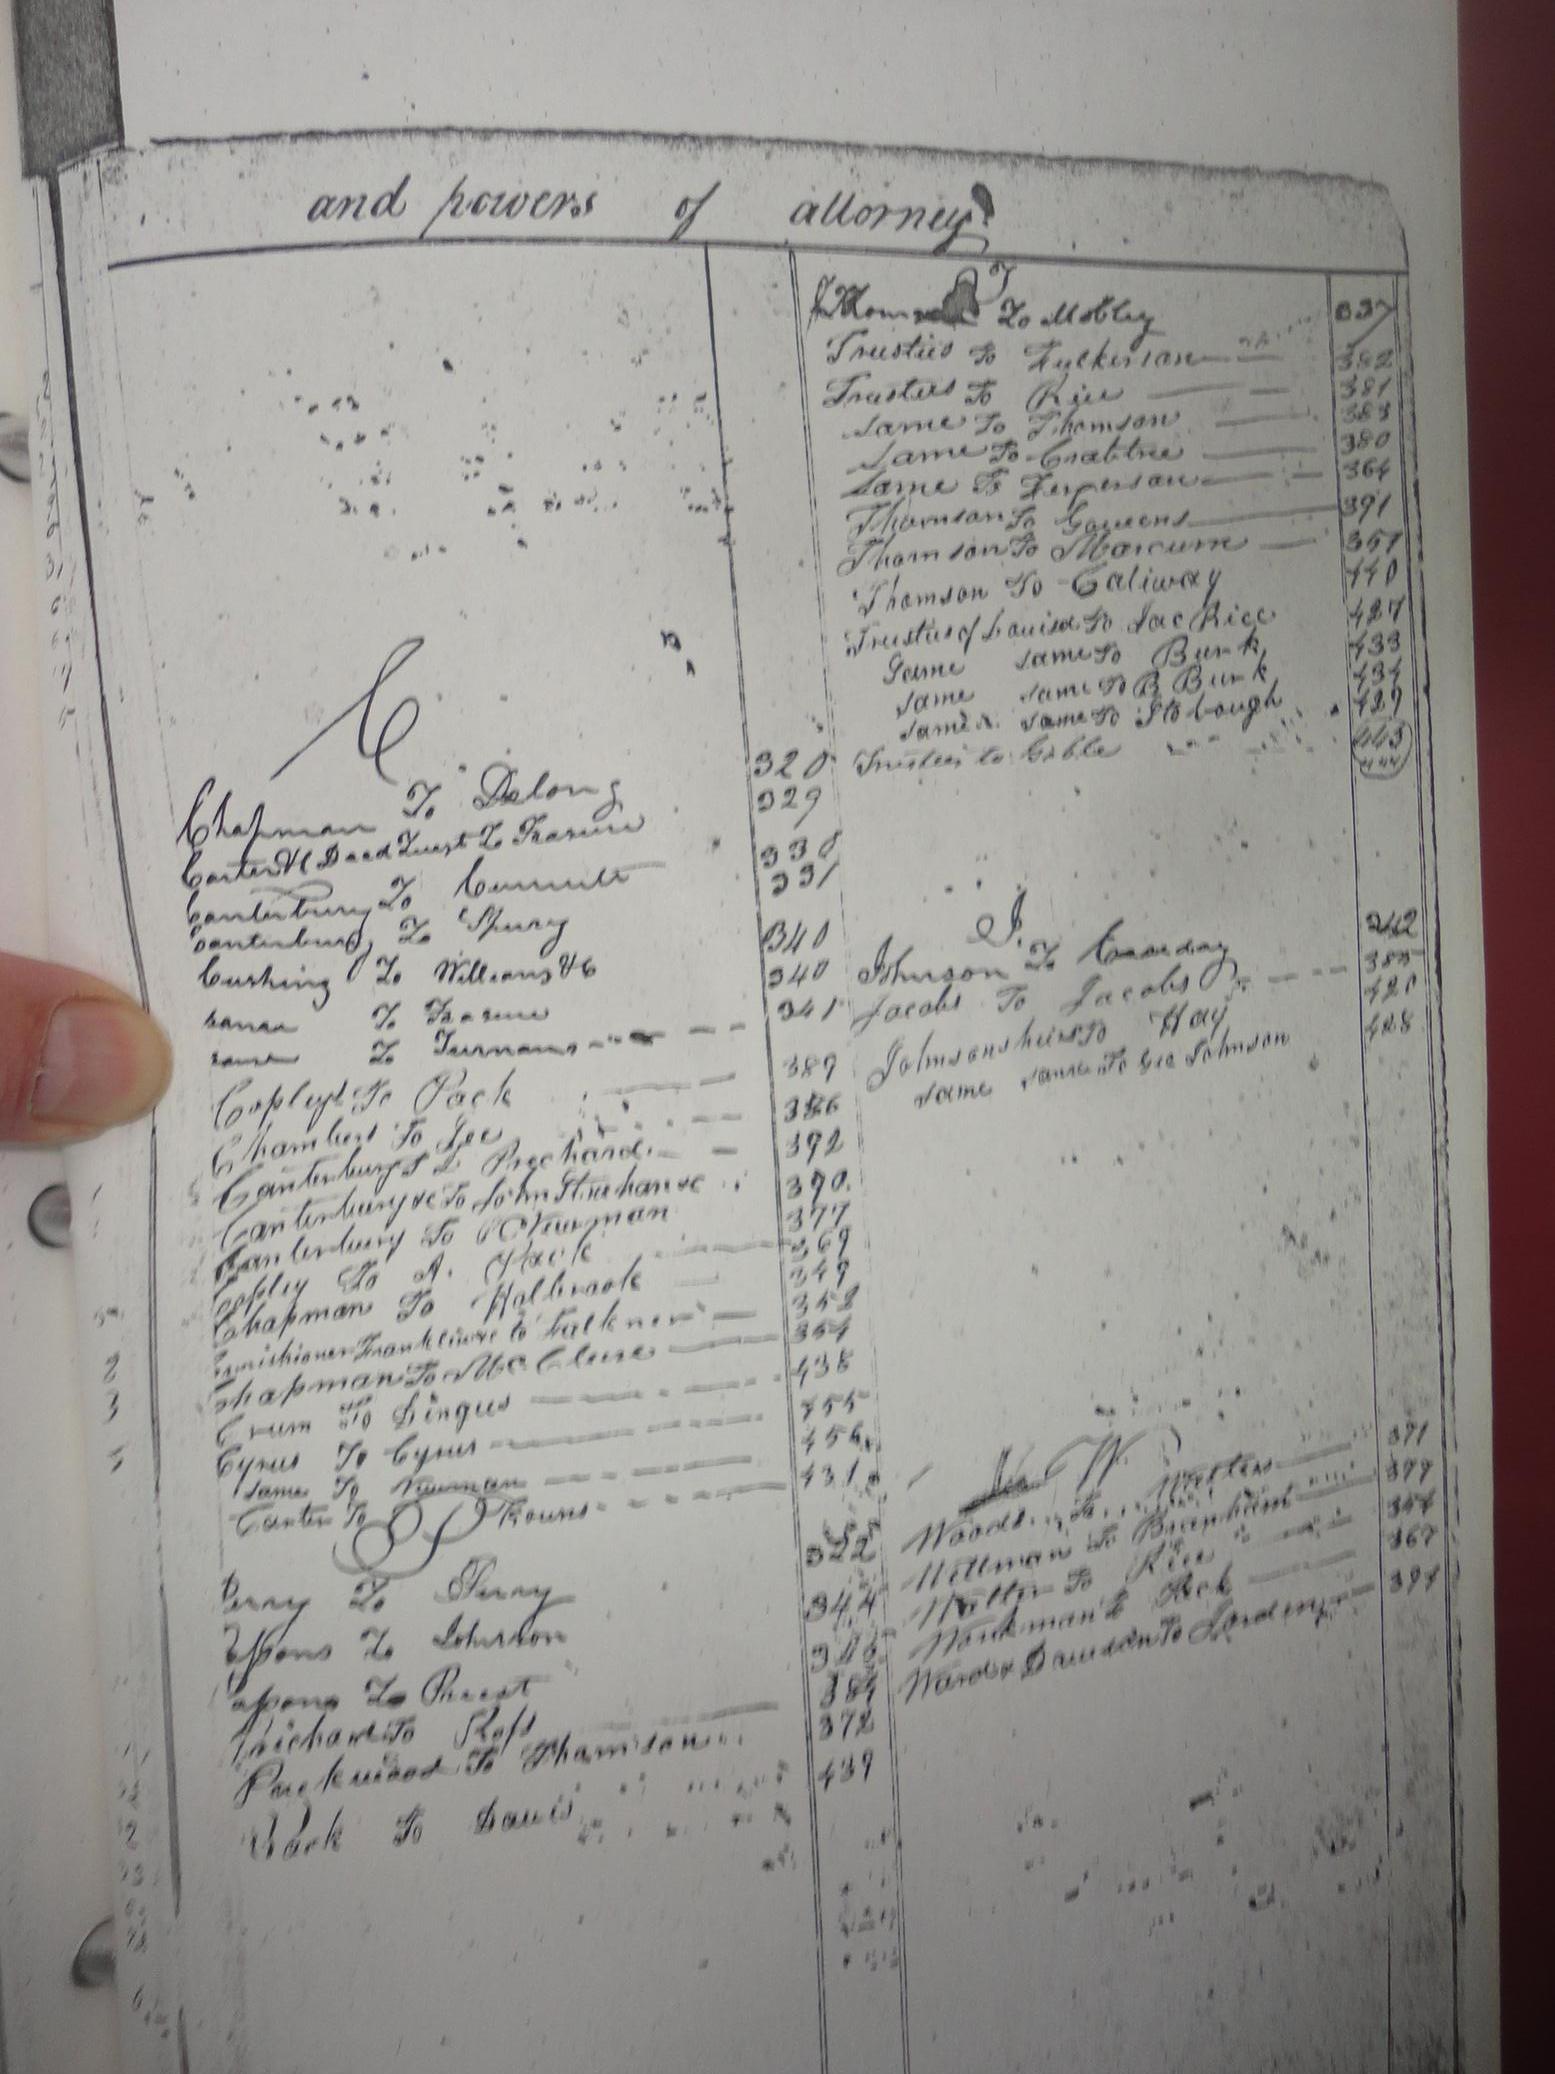 and powers of attorney
C
Chapman To Delong 320
Carter &C Deed Trust To Frasure 329
Canterbury To 330
Canterbury To Spurg 331
Cushing To Williams &C 340
same To Frasure 340
same To Turnans 341
Copley To Pack 389
Chambers To Lee 386
Canterburys To Prechard 392
Canterbury &c To John Strahan &c 390
Canterbury To Newman 377
Copley To A. Pack 369
Chapman To Holbrook 349
Franklin &c to Falkner 352
Chapman To McClure 354
Crum To Dingus 438
Cyrus To Cyrus 455
same To Newman 456
Carter To Kouns 431
P
Perry To Perry 322
To Johnson 344
To Priest 346
Prichard To Ross 384
Packwood To Thomson 372
Pack To Davis 439
T
To Mobley 337
Trusties To Fulkerson 382
Trusties To Rice 381
same To Thomson 383
same To Crabtree 380
same To Ferperson 364
Thomson To Gowens 391
Thomson To Marcum 357
Thomson To Caliway 440
Trusties of Louisa To Jac Rice 427
Same same To Burk 433
same same To B Burk 434
same same To Stobough 429
Trusties to Gable 443
J.
Johnson To 342
Jacobs To Jacobs 385
Johnsons heirs To Hay 420
same same To Geo Johnson 428
W
Woods To Walters 371
Wellman To Branham 379
Walter To Rice 354
Workman To Pack 367
Ward & Davidson To 394